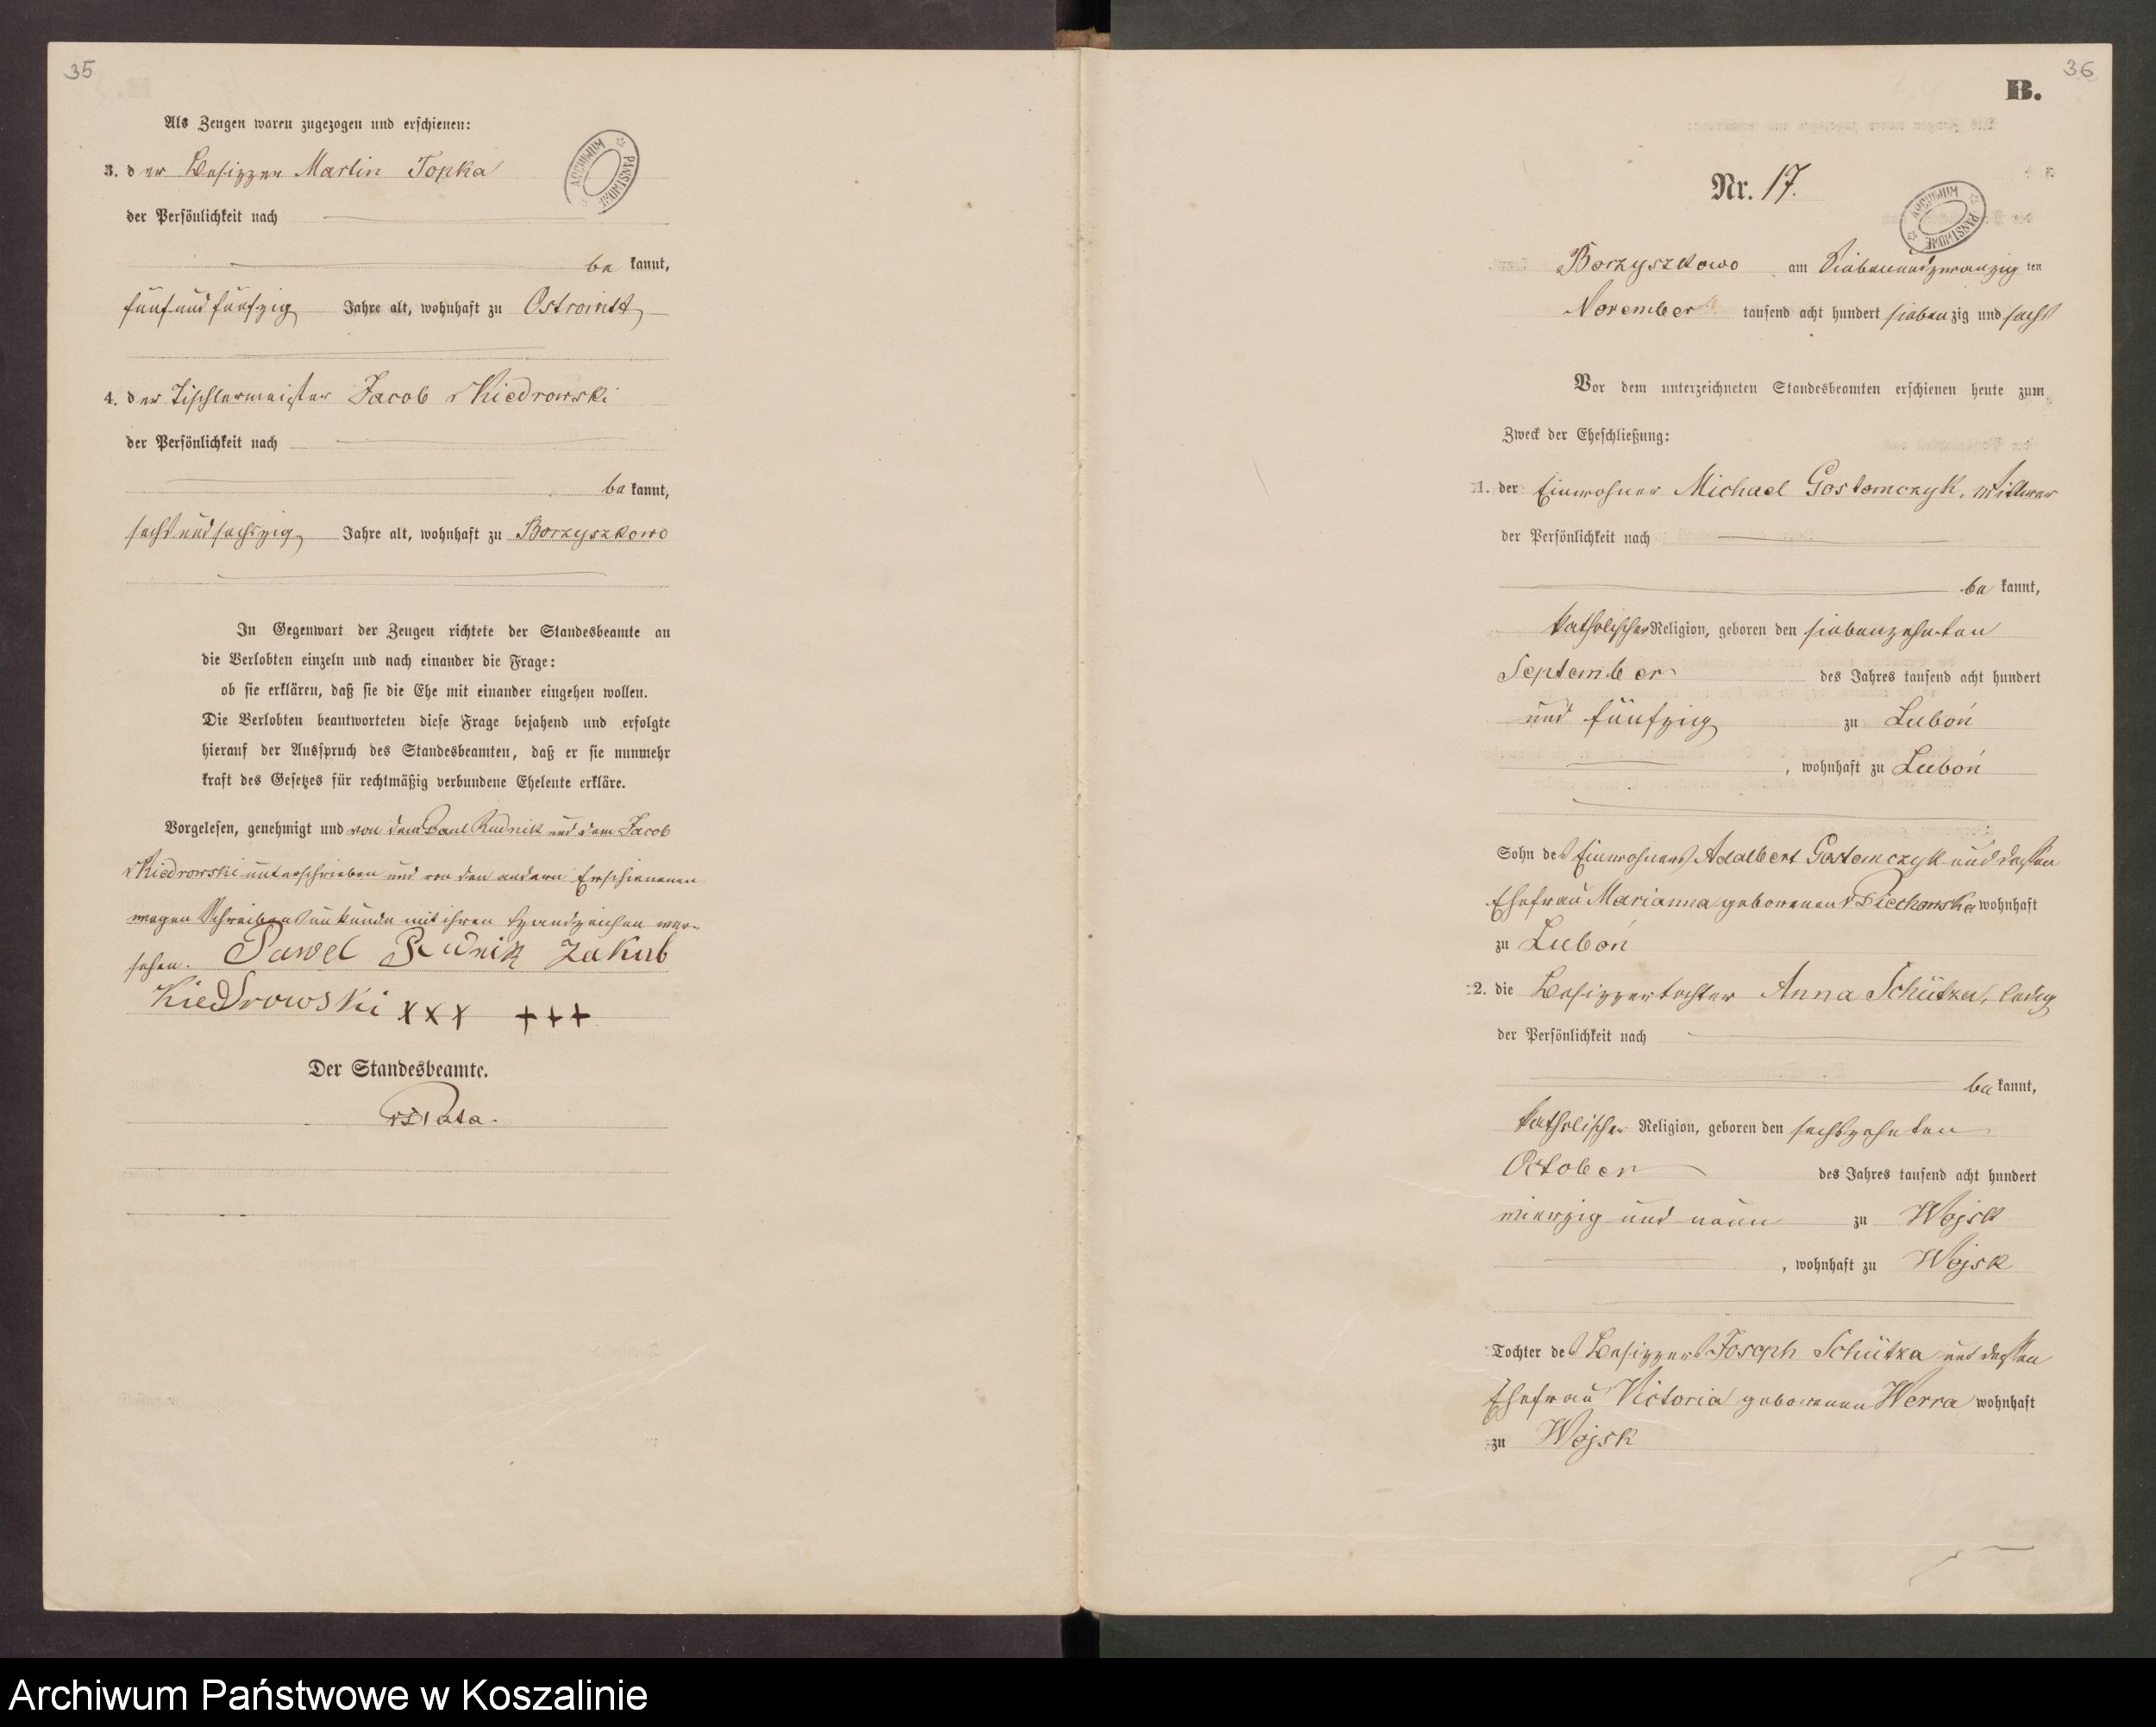 35
Als Zeugen waren zugezogen und erschienen:
3. der Besitzer Martin Topka
der Persönlichkeit nach
be kannt,
fünfundfünfzig Jahre alt, wohnhaft zu Ostrowitt
4. der Tischlermeister Jacob v Kiedrowski
der Persönlichkeit nach
be kannt,
sechsundsechzig Jahre alt, wohnhaft zu Borzyszkowo
In Gegenwart der Zeugen richtete der Standesbeamte an
die Verlobten einzeln und nach einander die Frage:
ob sie erklären, daß sie die Ehe mit einander eingehen wollen.
Die Verlobten beantworteten diese Frage bejahend und erfolgte
hierauf der Ausspruch des Standesbeamten, daß er sie nunmehr
kraft des Gesetzes für rechtmäßig verbundene Eheleute erkläre.
Vorgelesen, genehmigt und von dem Paul Rudnik und dem Jacob
v Kiedrowski unterschrieben und von den andern Erschienenen
wegen Schreibensunkunde mit ihren Handzeichen ver-
sehen. Pawel Rudnik Jakub
Kiedrowski xxx +++
Der Standesbeamte.
ARCHIWUM PAŃSTWOWE
36
B.
Nr. 17.
ARCHIWUM PAŃSTWOWE
Borzyszkowo am Siebenundzwanzig ten
November tausend acht hundert siebenzig und sechs
Vor dem unterzeichneten Standesbeamten erschienen heute zum
Zweck der Eheschließung:
1. der Einwohner Michael Gostomczyk, Wittwer
der Persönlichkeit nach
be kannt,
katholischer Religion, geboren den siebenzehnten
September des Jahres tausend acht hundert
und fünfzig zu Luboń
, wohnhaft zu Luboń
Sohn des Einwohners Adalbert Gostomczyk und dessen
Ehefrau Marianna geborenen v Piechowska wohnhaft
zu Luboń
2. die Besitzertochter Anna Schützka, ledig
der Persönlichkeit nach
be kannt,
katholischer Religion, geboren den sechszehnten
October des Jahres tausend acht hundert
vierzig und neun zu Wojsk
, wohnhaft zu Wojsk
Tochter des Besitzers Joseph Schützka und dessen
Ehefrau Victoria geborenen Werra wohnhaft
zu Wojsk
Archiwum Państwowe w Koszalinie